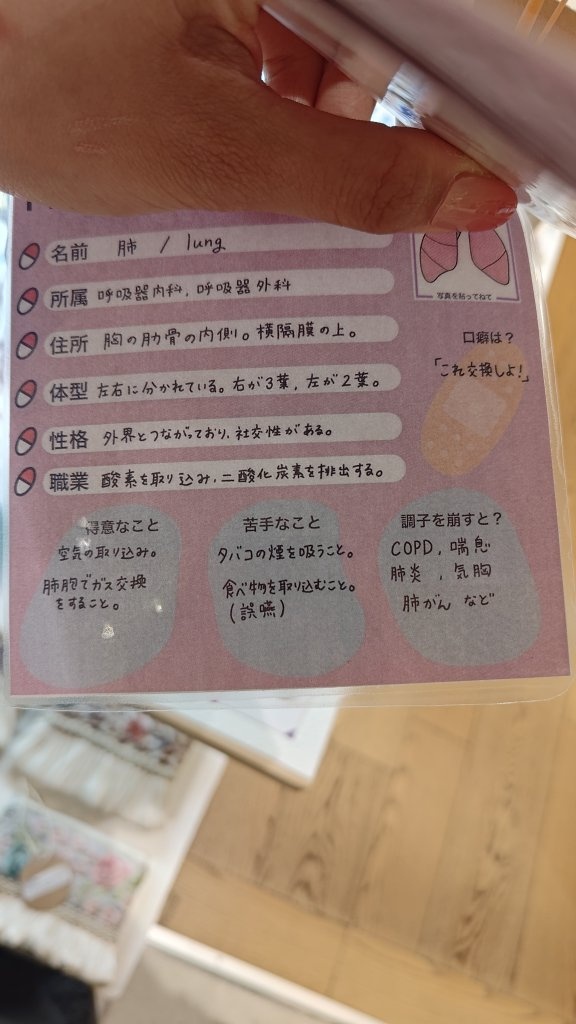 名前 肺 / lung
所属 呼吸器内科, 呼吸器外科
住所 胸の肋骨の内側。横隔膜の上。
体型 左右に分かれている。右が3葉, 左が2葉。
性格 外界とつながっており, 社交性がある。
職業 酸素を取り込み, 二酸化炭素を排出する。
写真を貼ってねて
口癖は?
「これ交換しよ!」
得意なこと
空気の取り込み。
肺胞でガス交換
をすること。
苦手なこと
タバコの煙を吸うこと。
食べ物を取り込むこと。
(誤嚥)
調子を崩すと?
COPD, 喘息
肺炎, 気胸
肺がん など